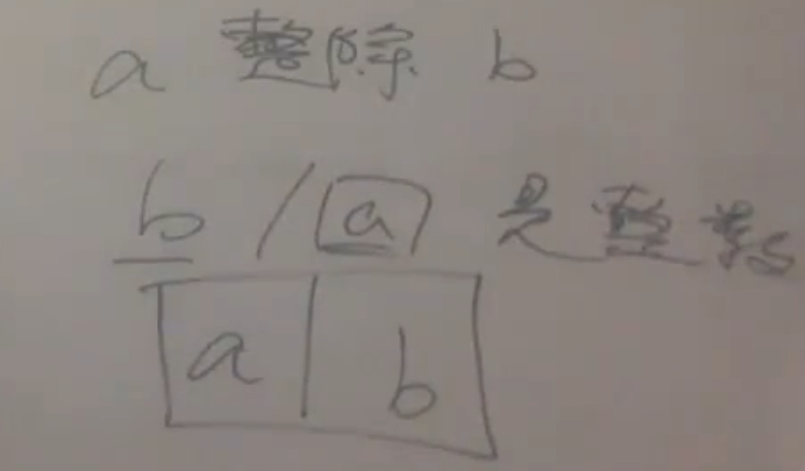 a 整除 b
b / a 是整數
a | b